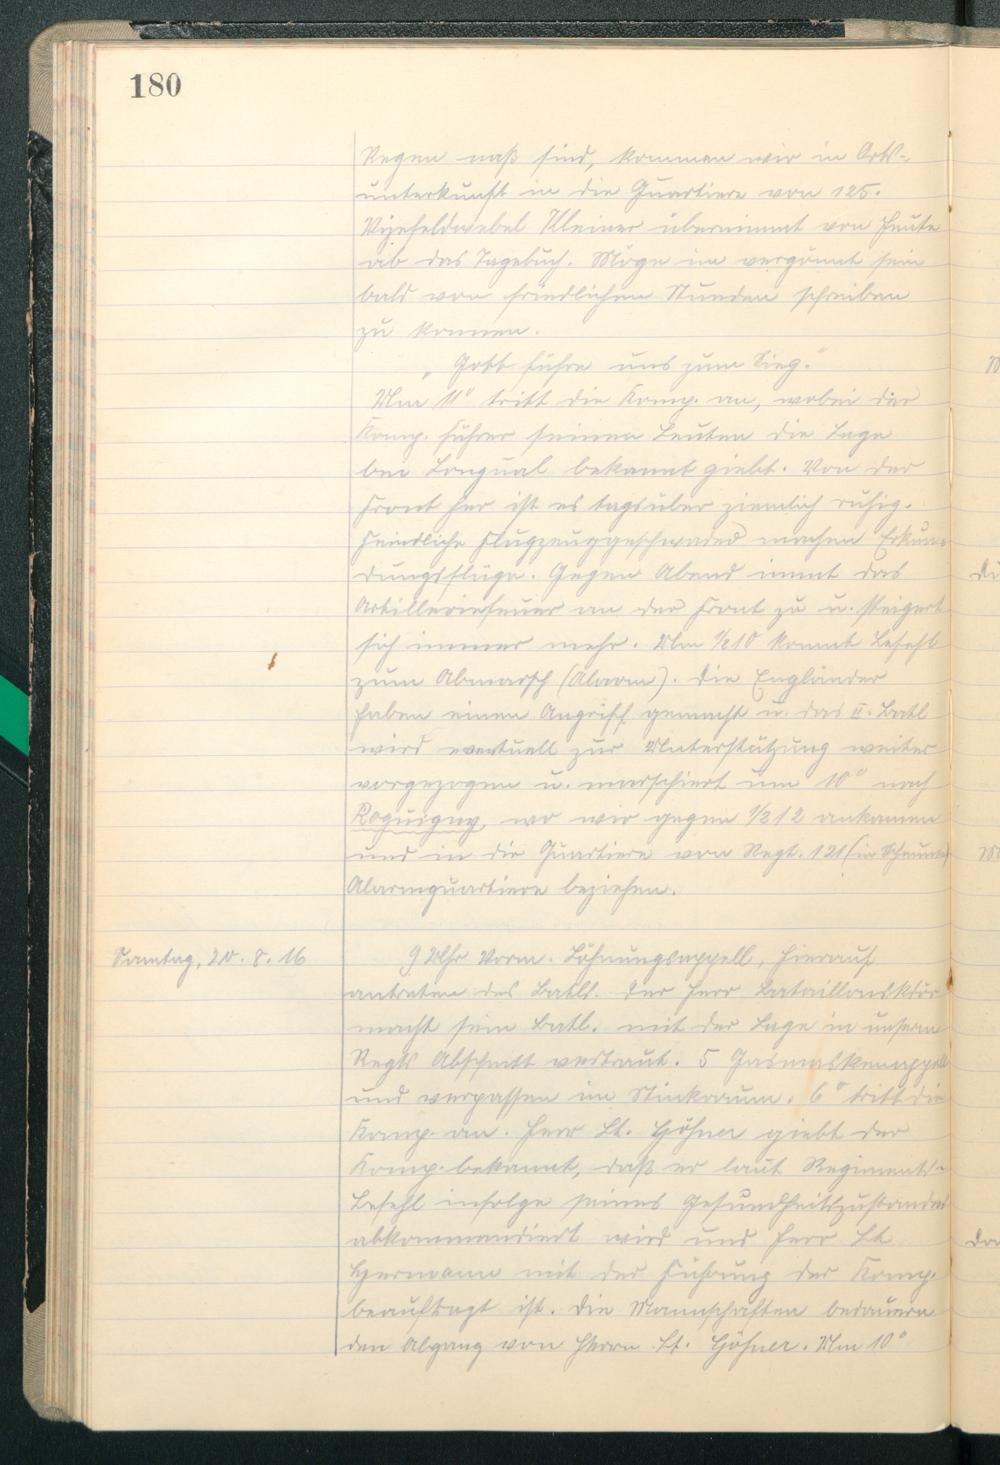 180
Regen naß sind, kommen wir in Orts-
unterkunft in die Quartiere von 125.
Vizefeldwebel Kleiner übernimmt von heute
ab das Tagebuch. Möge im vergönnt sein
bald von friedlichen Stunden schreiben
zu können.
„Gott führe uns zum Sieg."
Um 11° tritt die Komp. an, wobei der
Komp. Führer seinen Leuten die Lage
bei Longual bekannt giebt. Von der
Front her ist es tagsüber ziemlich ruhig.
Feindliche Flugzeuggeschwader machen Erkun-
dungsflüge. Gegen Abend nimmt das
Artilleriefeuer an der Front zu u. steigert
sich immer mehr. Um ½10 kommt Befehl
zum Abmarsch (Alarm). Die Engländer
haben einen Angriff gemacht u. das II. Batl
wird eventuell zur Unterstützung weiter
vorgezogen u. marschiert um 10° nach
Roquigny, wo wir gegen ½12 ankamen
und in die Quartiere von Regt. 121 (in Scheunen)
Alarmquartiere beziehen.
Sonntag, 20. 8. 16
9 Uhr Vorm. Löhnungsappell, hierauf
antreten des Batls. Der Herr Bataillonskdör
macht sein Batl. mit der Lage in unserm
Regts Abschnitt vertraut. 5 Gasmaskenappell
und verpassen im Stinkraum. 6° tritt die
Komp. an. Herr Lt. Höhner giebt der
Komp. bekannt, daß er laut Regiments-
Befehl infolge seines Gesundheitszustandes
abkommandiert wird und Herr Lt
Hermann mit der Führung der Komp.
beauftragt ist. Die Mannschaften bedauern
den Abgang von Herrn Lt. Höhner. Um 10°